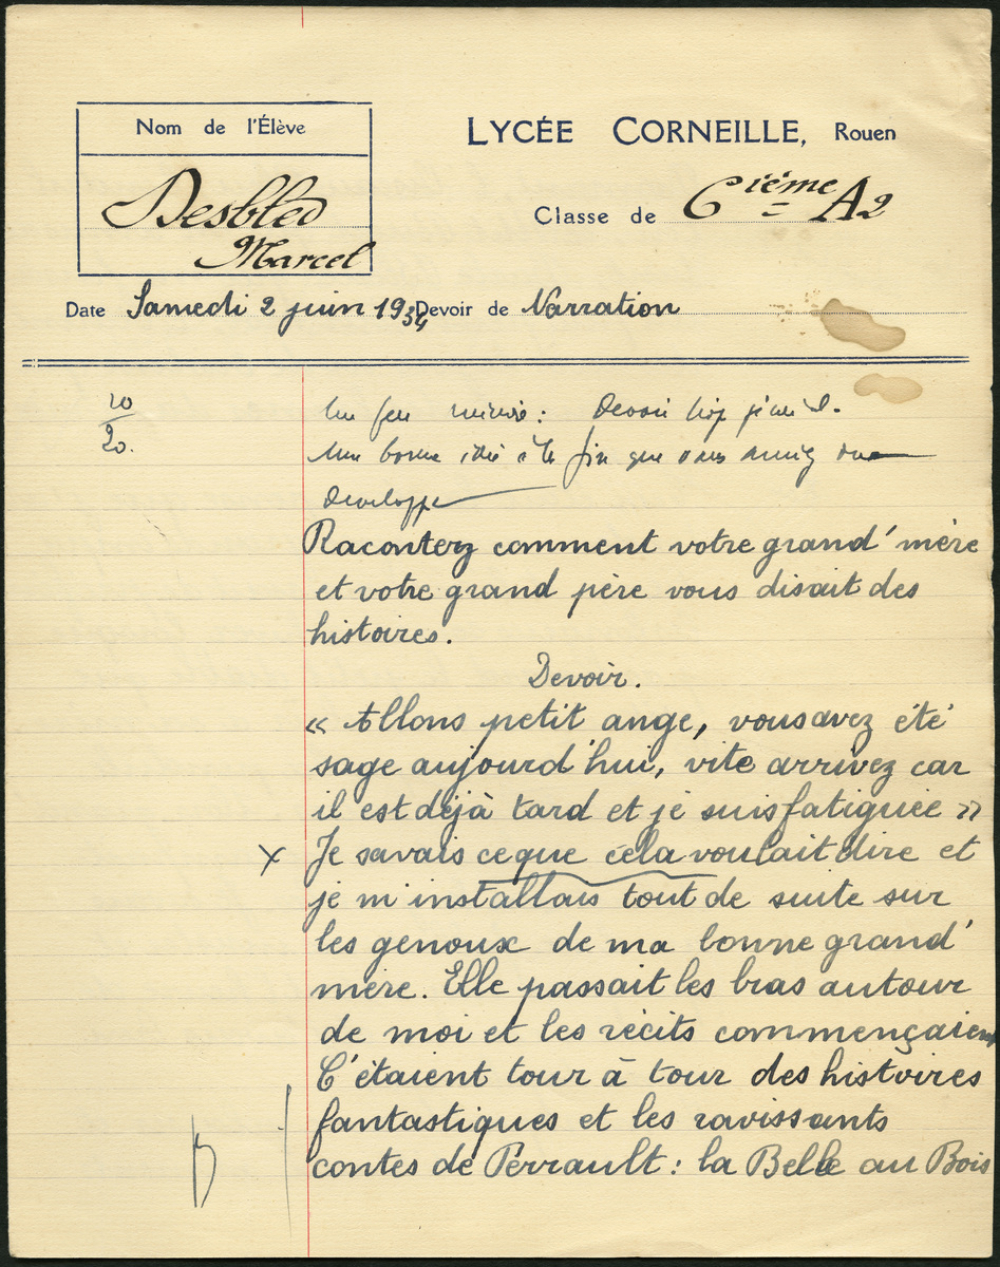 Nom de l'Élève
LYCÉE CORNEILLE, Rouen
Desbled
Marcel
Classe de 6ième A2
Date Samedi 2 juin 1934 Devoir de Narration
10
20.
Un peu : Devoir trop
Une bonne idée à la fin que vous auriez dû
développer
Racontez comment votre grand' mère
et votre grand père vous disait des
histoires.
Devoir.
« Allons petit ange, vous avez été
sage aujourd'hui, vite arrivez car
il est déjà tard et je suis fatiguée »
x Je savais ce que cela voulait dire et
je m'installais tout de suite sur
les genoux de ma bonne grand'
mère. Elle passait les bras autour
de moi et les récits commençaient
C'étaient tour à tour des histoires
fantastiques et les ravissants
B contes de Perrault : la Belle au Bois